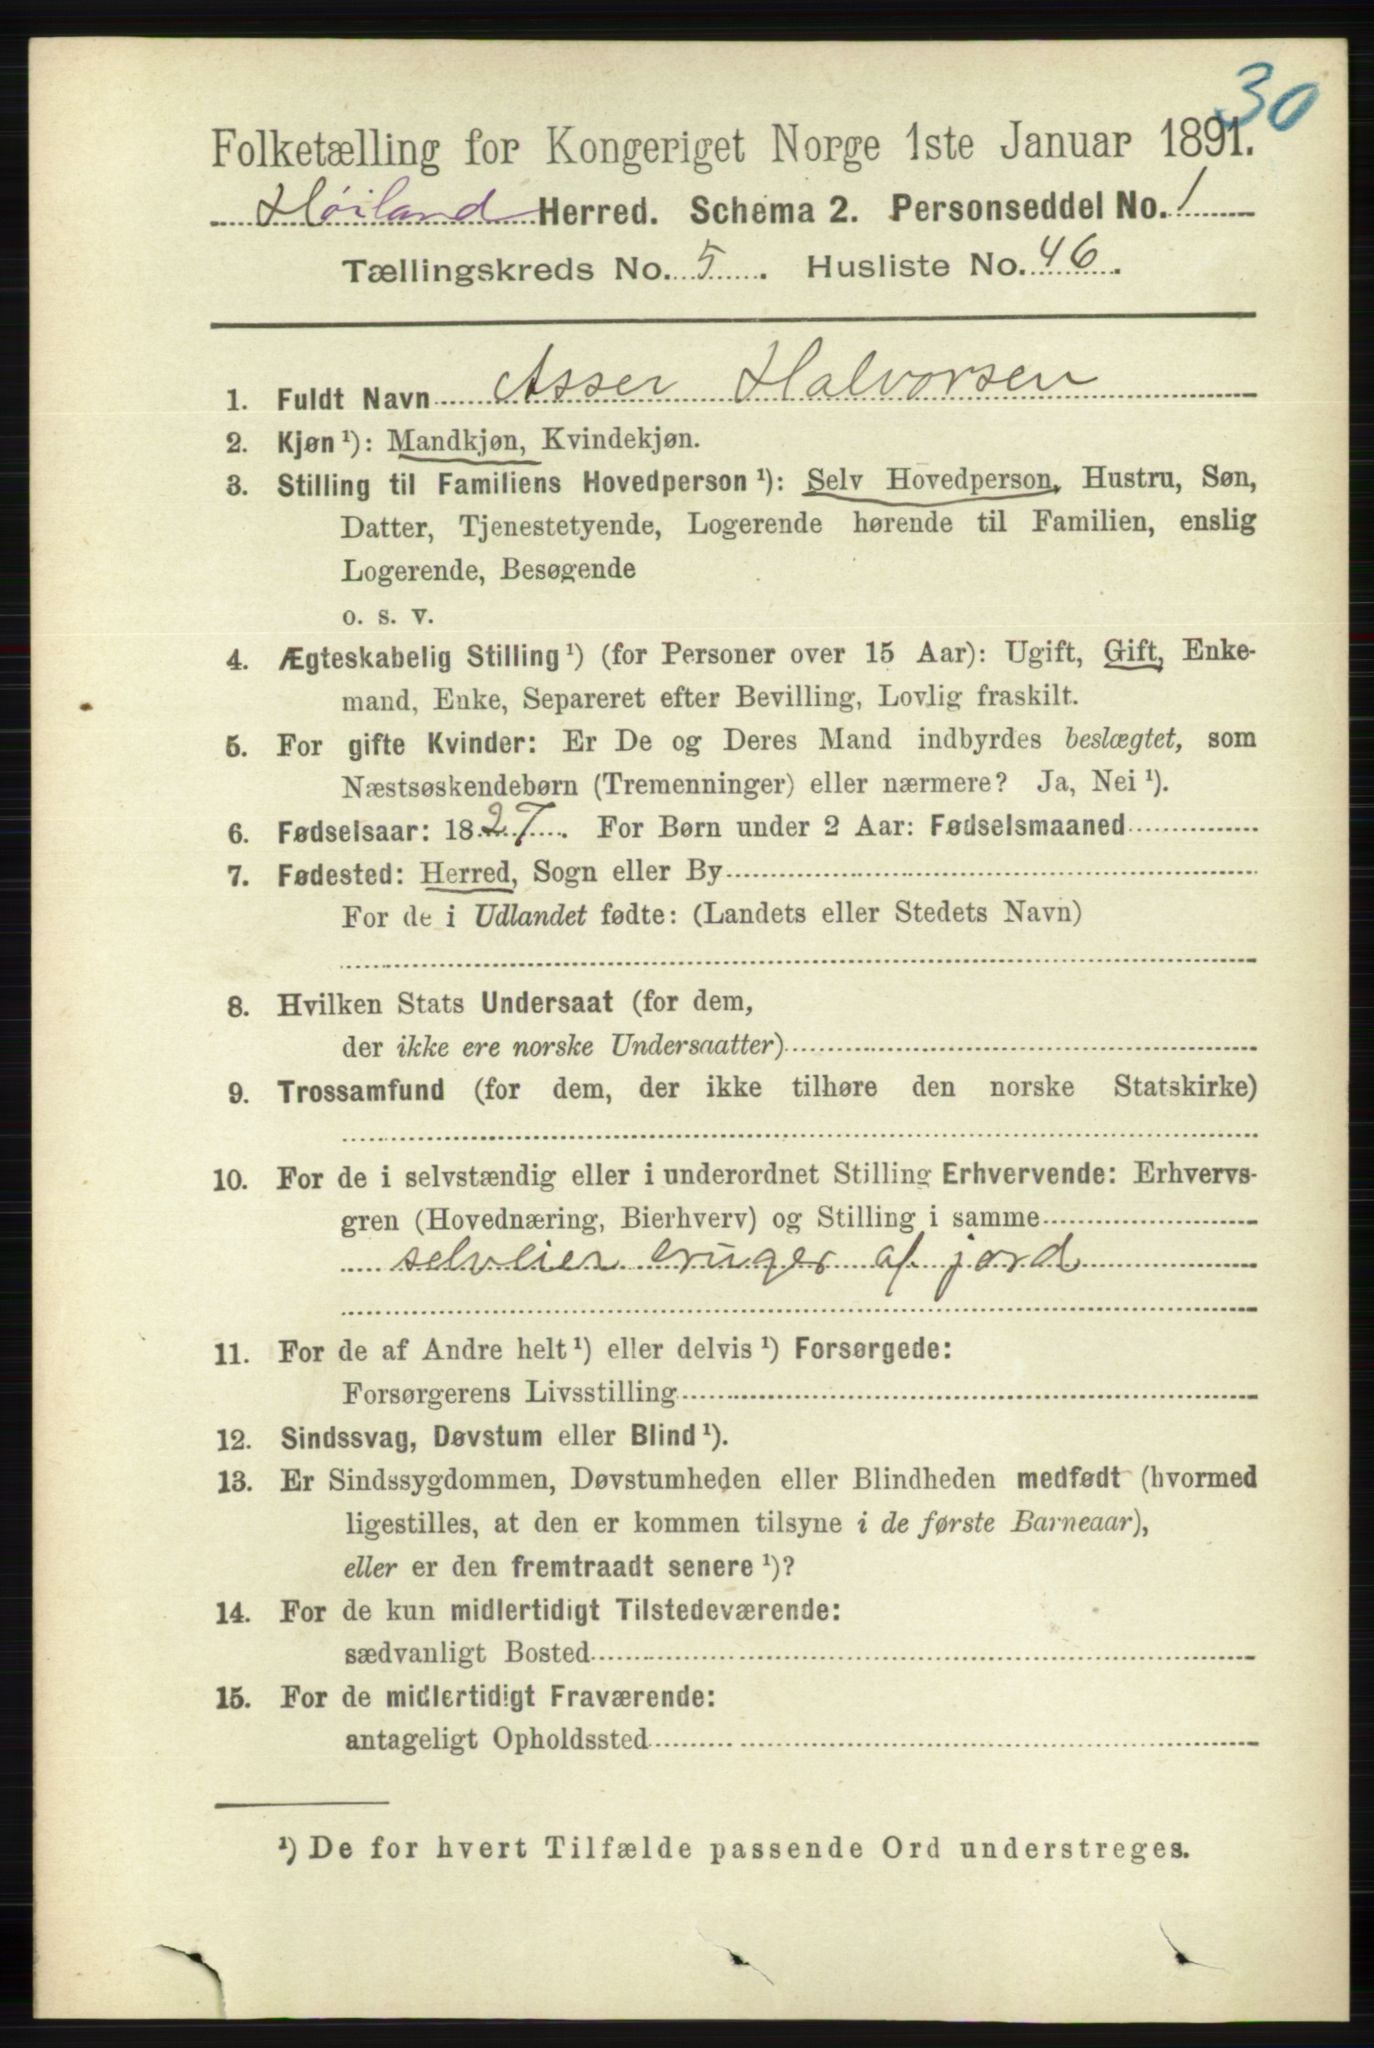 30
Folketælling for Kongeriget Norge 1ste Januar 1891.
Høiland Herred. Schema 2. Personseddel No. 1
Tællingskreds No. 5. Husliste No. 46.
1. Fuldt Navn Asser Halvorsen
2. Kjøn ¹): Mandkjøn, Kvindekjøn.
3. Stilling til Familiens Hovedperson ¹): Selv Hovedperson, Hustru, Søn,
Datter, Tjenestetyende, Logerende hørende til Familien, enslig
Logerende, Besøgende
o. s. v.
4. Ægteskabelig Stilling ¹) (for Personer over 15 Aar): Ugift, Gift, Enke-
mand, Enke, Separeret efter Bevilling, Lovlig fraskilt.
5. For gifte Kvinder: Er De og Deres Mand indbyrdes beslægtet, som
Næstsøskendebørn (Tremenninger) eller nærmere? Ja, Nei ¹).
6. Fødselsaar: 1827. For Børn under 2 Aar: Fødselsmaaned
7. Fødested: Herred, Sogn eller By
For de i Udlandet fødte: (Landets eller Stedets Navn)
8. Hvilken Stats Undersaat (for dem,
der ikke ere norske Undersaatter)
9. Trossamfund (for dem, der ikke tilhøre den norske Statskirke)
10. For de i selvstændig eller i underordnet Stilling Erhvervende: Erhvervs-
gren (Hovednæring, Bierhverv) og Stilling i samme
selveier bruger af jord
11. For de af Andre helt ¹) eller delvis ¹) Forsørgede:
Forsørgerens Livsstilling
12. Sindssvag, Døvstum eller Blind ¹).
13. Er Sindssygdommen, Døvstumheden eller Blindheden medfødt (hvormed
ligestilles, at den er kommen tilsyne i de første Barneaar),
eller er den fremtraadt senere ¹)?
14. For de kun midlertidigt Tilstedeværende:
sædvanligt Bosted
15. For de midlertidigt Fraværende:
antageligt Opholdssted
¹) De for hvert Tilfælde passende Ord understreges.